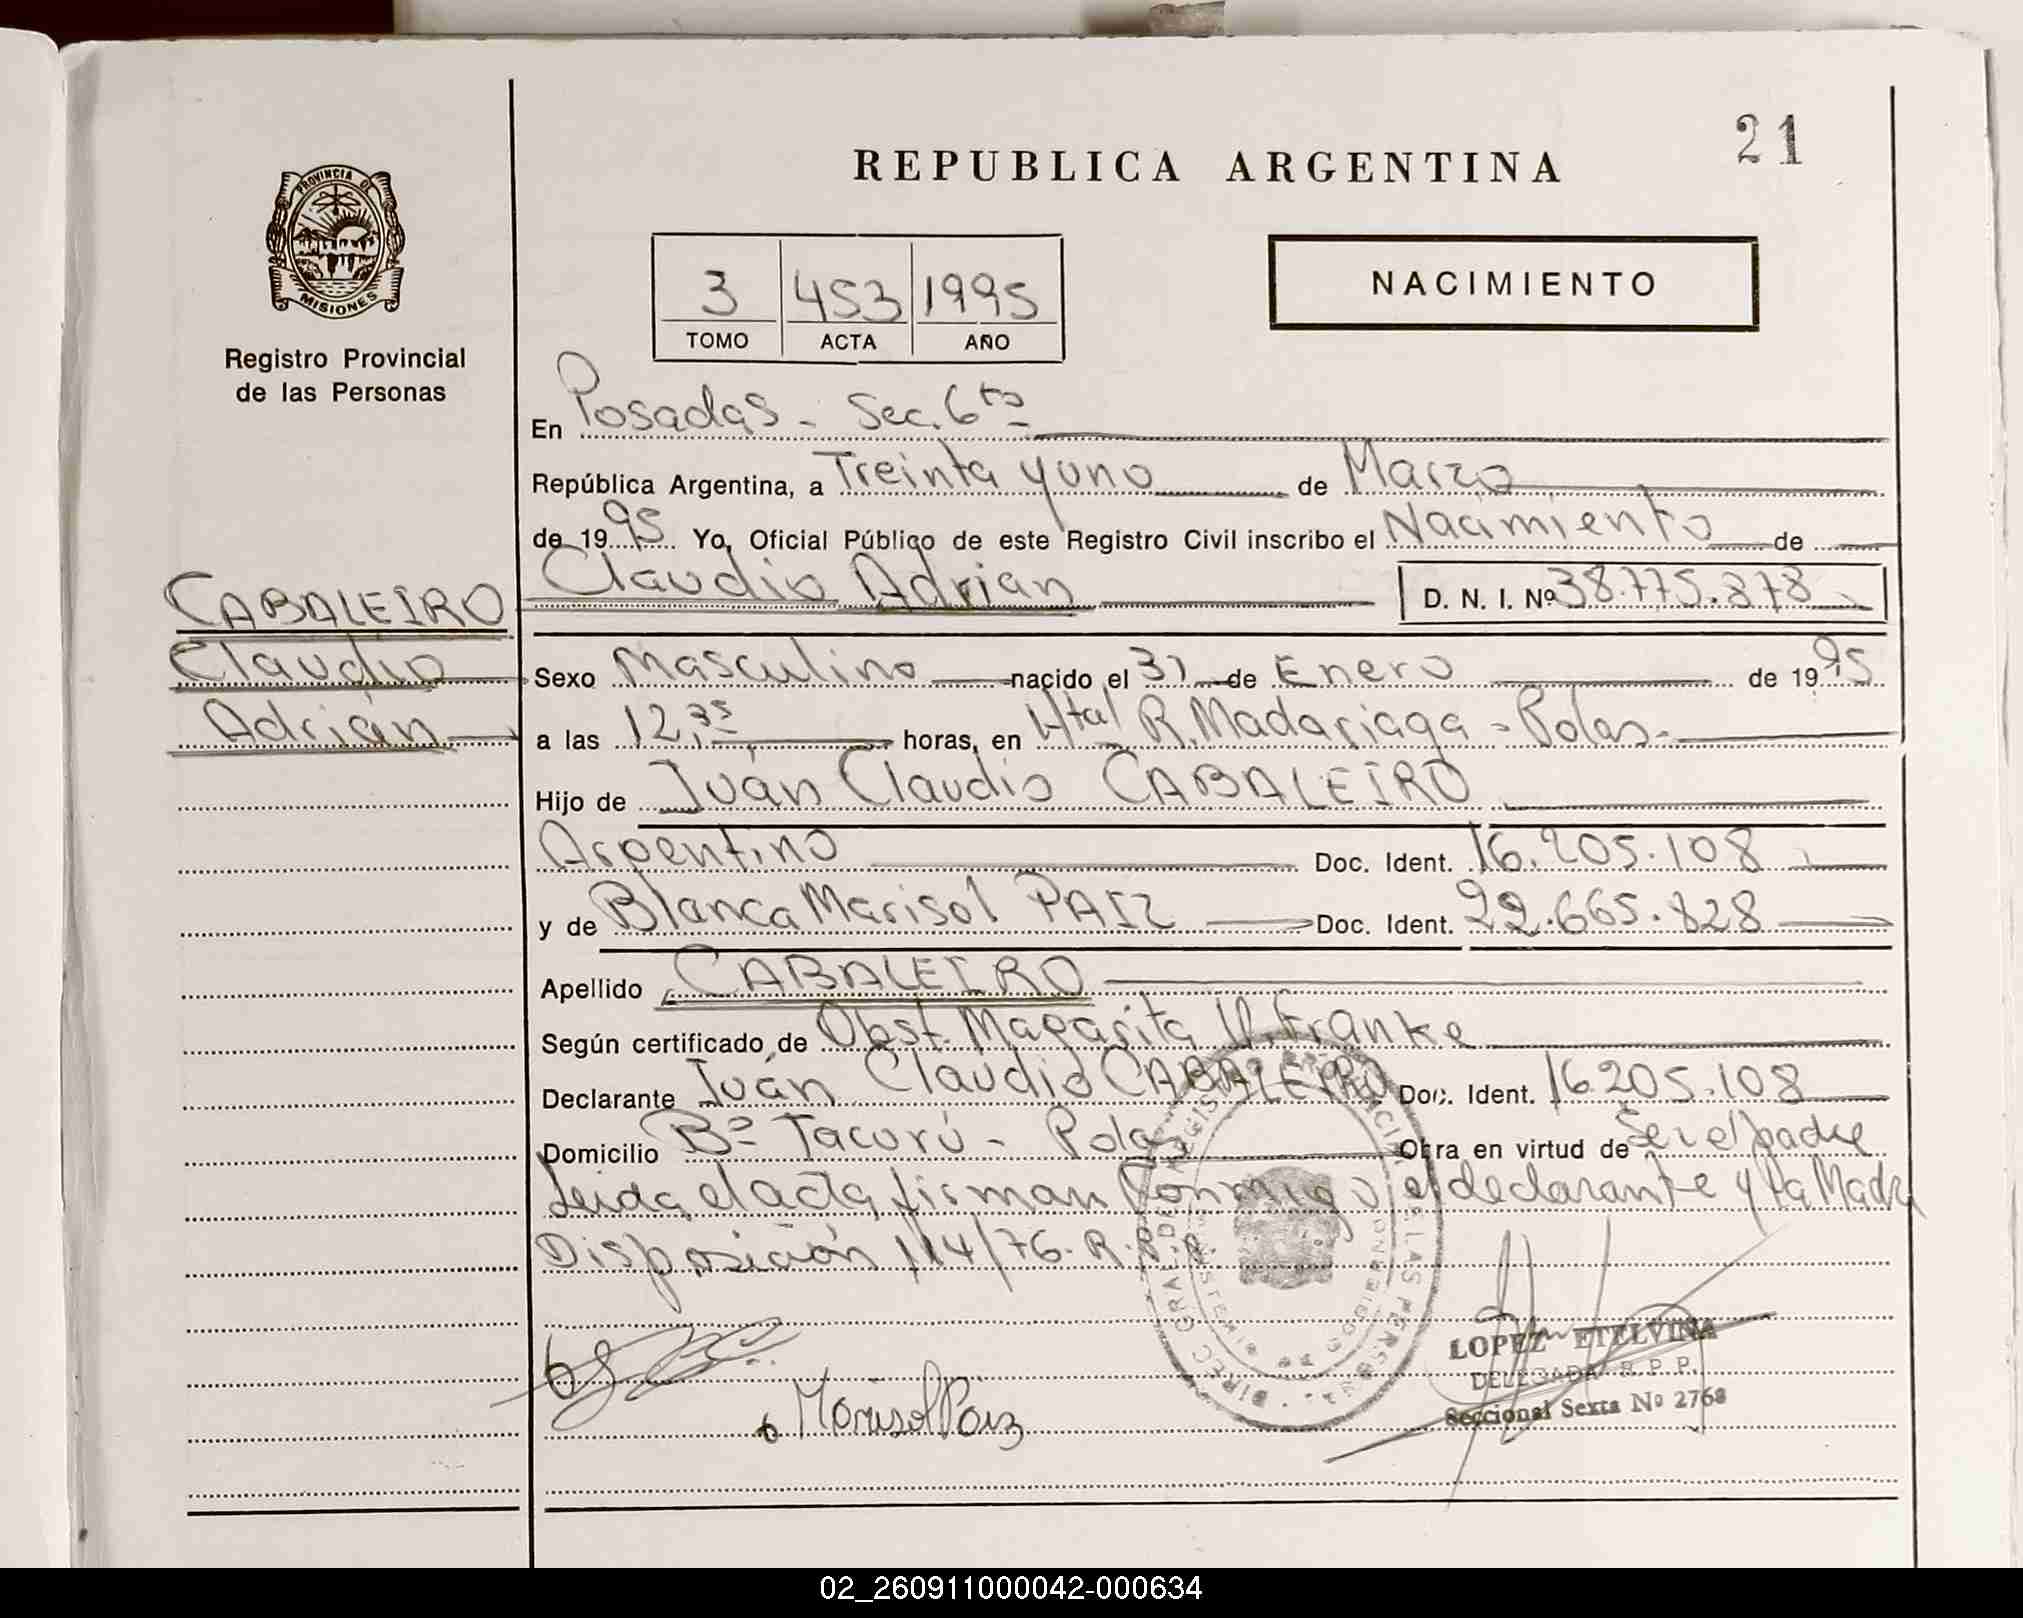 21
REPUBLICA ARGENTINA
PROVINCIA DE
MISIONES
Registro Provincial
de las Personas
NACIMIENTO
3 453 1995
TOMO ACTA AÑO
En Posadas - Sec. 6ta
República Argentina, a Treinta y uno de Marzo
de 1995 Yo, Oficial Público de este Registro Civil inscribo el Nacimiento de
CABALEIRO Claudio Adrian D. N. I. Nº 38.775.878
Claudio Sexo Masculino nacido el 31 de Enero de 1995
Adrián a las 12,35 horas, en Htal R. Madariaga - Pdas.
Hijo de Juán Claudio CABALEIRO
Argentino Doc. Ident. 16.205.108
y de Blanca Marisol PAIZ Doc. Ident. 22.665.828
Apellido CABALEIRO
Según certificado de Obst. Magarita Franke
Declarante Juán Claudio CABALEIRO Doc. Ident. 16.205.108
Domicilio Bº Tacurú - Pdas Obra en virtud de Ser el padre
Leida el acta firman Conmigo el declarante y la Madre
Disposición 114/76. R.P.P.
LOPEZ ETELVINA
DELEGADA R. P. P.
Seccional Sexta Nº 2768
Marisol Paiz
02_260911000042-000634